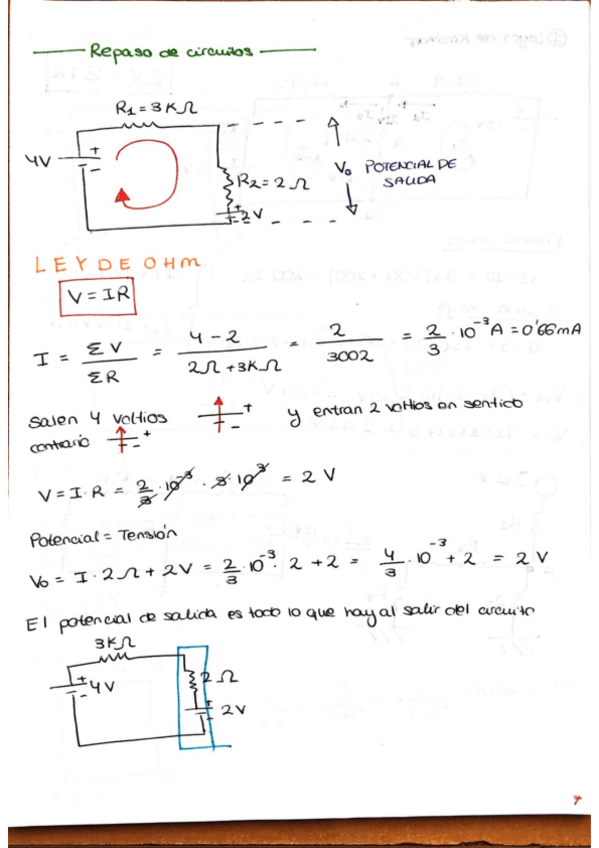 Repaso de circuitos
R1 = 3KΩ
4V
+
-
R2 = 2Ω
+
-
2V
Vo POTENCIAL DE
SALIDA
LEY DE OHM
V = IR
I = ΣV / ΣR = 4 - 2 / 2Ω + 3KΩ = 2 / 3002 = 2/3 · 10⁻³ A = 0'66mA
Salen 4 voltios + - y entran 2 voltios en sentido
contrario + -
V = I · R = 2/3 · 10⁻³ · 3 · 10³ = 2 V
Potencial = Tensión
Vo = I · 2Ω + 2V = 2/3 · 10⁻³ · 2 + 2 = 4/3 · 10⁻³ + 2 = 2 V
El potencial de salida es todo lo que hay al salir del circuito
3KΩ
+
-
4V
2Ω
+
-
2V
7